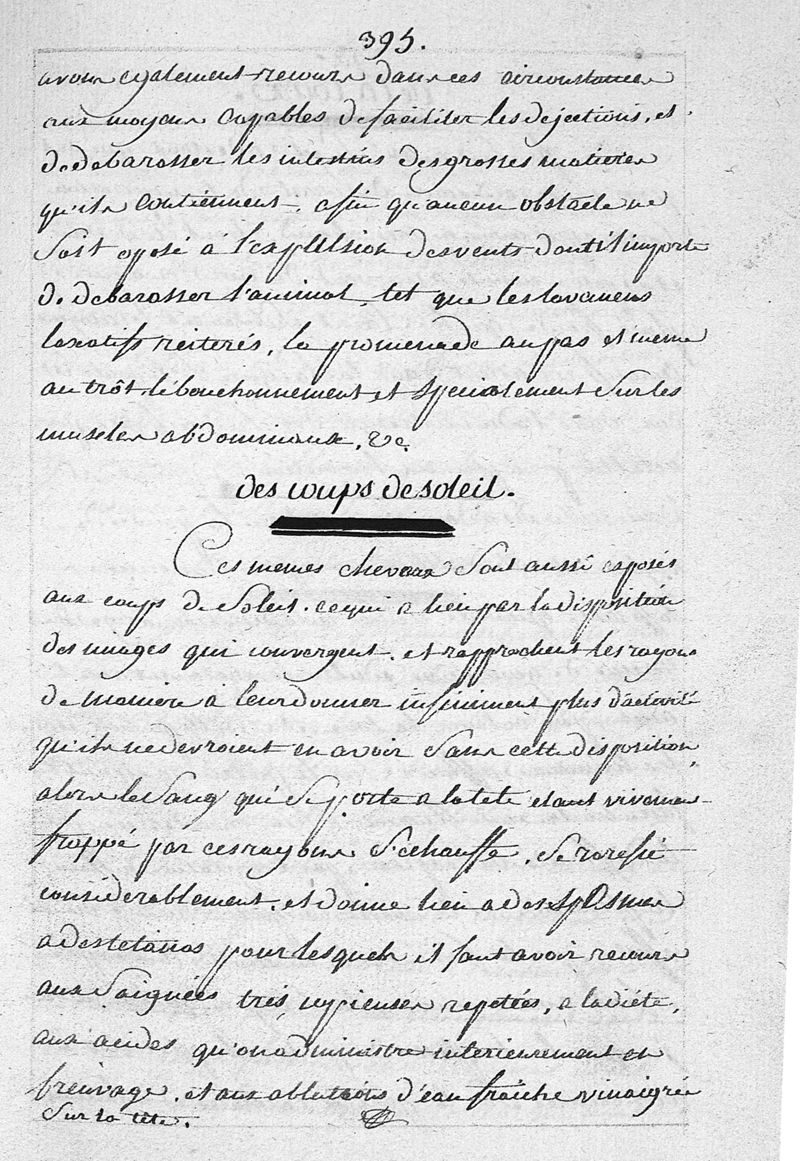 395.
avons egalement recours dans ces circonstances
aux moyens capables de faciliter les dejections, et
de debarasser les intestins des grosses matieres
qu'ils contiennent, afin qu'aucun obstacle ne
soit oposé à l'expulsion des vents dont il importe
de debarasser l'animal, tel que les lavemens
laxatifs reiterés, la promenade au pas et meme
au trôt, le bouchonnement et specialement sur les
muscles abdominaux, &c.
des coups de soleil.
Ces memes chevaux sont aussi exposés
aux coups de soleil. ce qui a lieu par la disposition
des nuages qui convergent, et rapprochent les rayons
de maniere a leur donner infiniment plus d'activité
qu'ils ne devroient en avoir sans cette disposition,
alors le sang qui se porte a la tete etant vivement
frappé par ces rayons s'echauffe, se rarefie
considerablement, et donne lieu a des spasmes
a des tetanos pour lesquels il faut avoir recours
aux saignées très copieuses repetées, a la diéte,
aux acides qu'on administre interieurement en
breuvage, et aux ablutions d'eau fraiche vinaigrée
sur la tête.